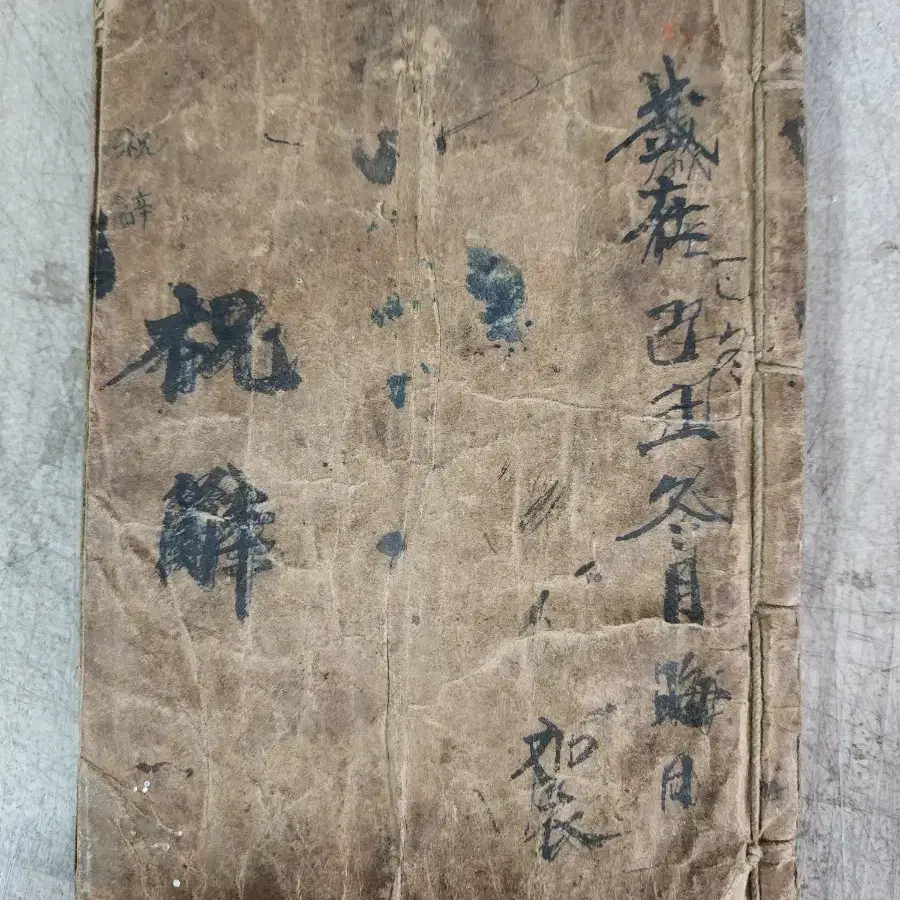 歲在己丑冬月晦日
加衣
祝辭
祝辭